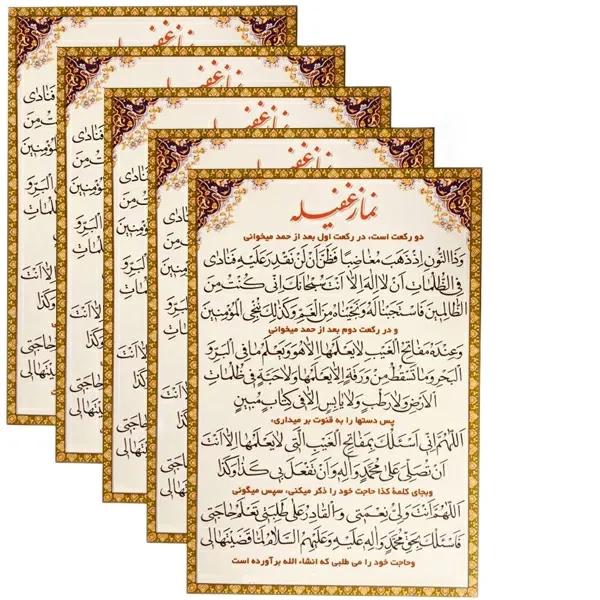 نماز غفیله
دو رکعت است، در رکعت اول بعد از حمد میخوانی
وَذَا النُّونِ اِذْ ذَهَبَ مُغَاضِبًا فَظَنَّ اَنْ لَنْ نَقْدِرَ عَلَيْهِ فَنَادٰى
فِی الظُّلُمَاتِ اَنْ لَا اِلٰهَ اِلَّا اَنْتَ سُبْحَانَكَ اِنّی كُنْتُ مِنَ
الظَّالِمِینَ فَاسْتَجَبْنَا لَهُ وَنَجَّیْنَاهُ مِنَ الْغَمِّ وَكَذٰلِكَ نُنْجِی الْمُؤْمِنِینَ
و در رکعت دوم بعد از حمد میخوانی
وَعِنْدَهُ مَفَاتِحُ الْغَیْبِ لَا یَعْلَمُهَا اِلَّا هُوَ وَیَعْلَمُ مَا فِی الْبَرِّ وَ
الْبَحْرِ وَمَا تَسْقُطُ مِنْ وَرَقَةٍ اِلَّا یَعْلَمُهَا وَلَا حَبَّةٍ فِی ظُلُمَاتِ
الْاَرْضِ وَلَا رَطْبٍ وَلَا یَابِسٍ اِلَّا فِی كِتَابٍ مُبِینٍ
پس دستها را به قنوت بر میداری،
اَللّٰهُمَّ اِنّی اَسْئَلُكَ بِمَفَاتِحِ الْغَیْبِ الَّتی لَا یَعْلَمُهَا اِلَّا اَنْتَ
اَنْ تُصَلِّیَ عَلٰى مُحَمَّدٍ وَآلِهِ وَاَنْ تَفْعَلَ بی كَذَا وَكَذَا
وبجای کلمهٔ کذا حاجت خود را ذکر میکنی، سپس میگوئی
اَللّٰهُمَّ اَنْتَ وَلِیُّ نِعْمَتی وَالْقَادِرُ عَلٰى طَلِبَتی تَعْلَمُ حَاجَتی
فَاَسْئَلُكَ بِحَقِّ مُحَمَّدٍ وَآلِهِ عَلَیْهِ وَعَلَیْهِمُ السَّلَامُ لَمَّا قَضَیْتَهَا لی
وحاجت خود را می طلبی که انشاء الله برآورده است